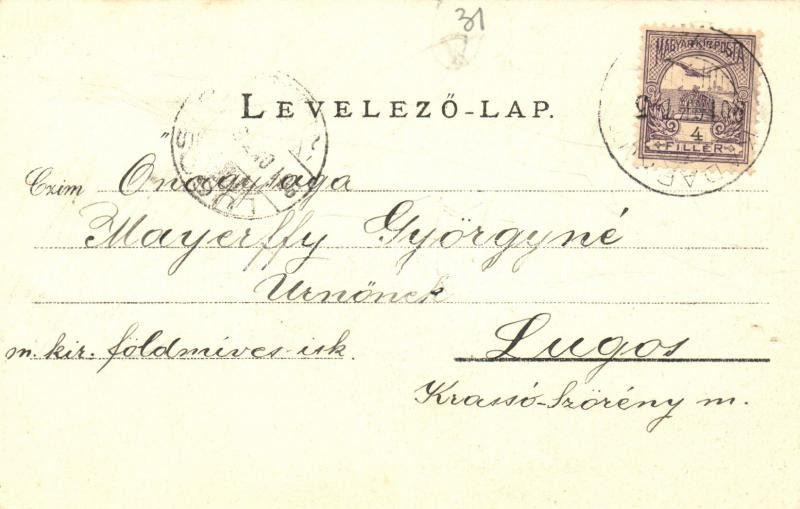 31
MAGYAR KIR. POSTA
4
FILLÉR
LEVELEZŐ-LAP.
Czim Onagysaga
Mayerffy Györgyné
Urnőnek
m. kir. földmíves-isk.
Lugos
Krassó-Szörény m.